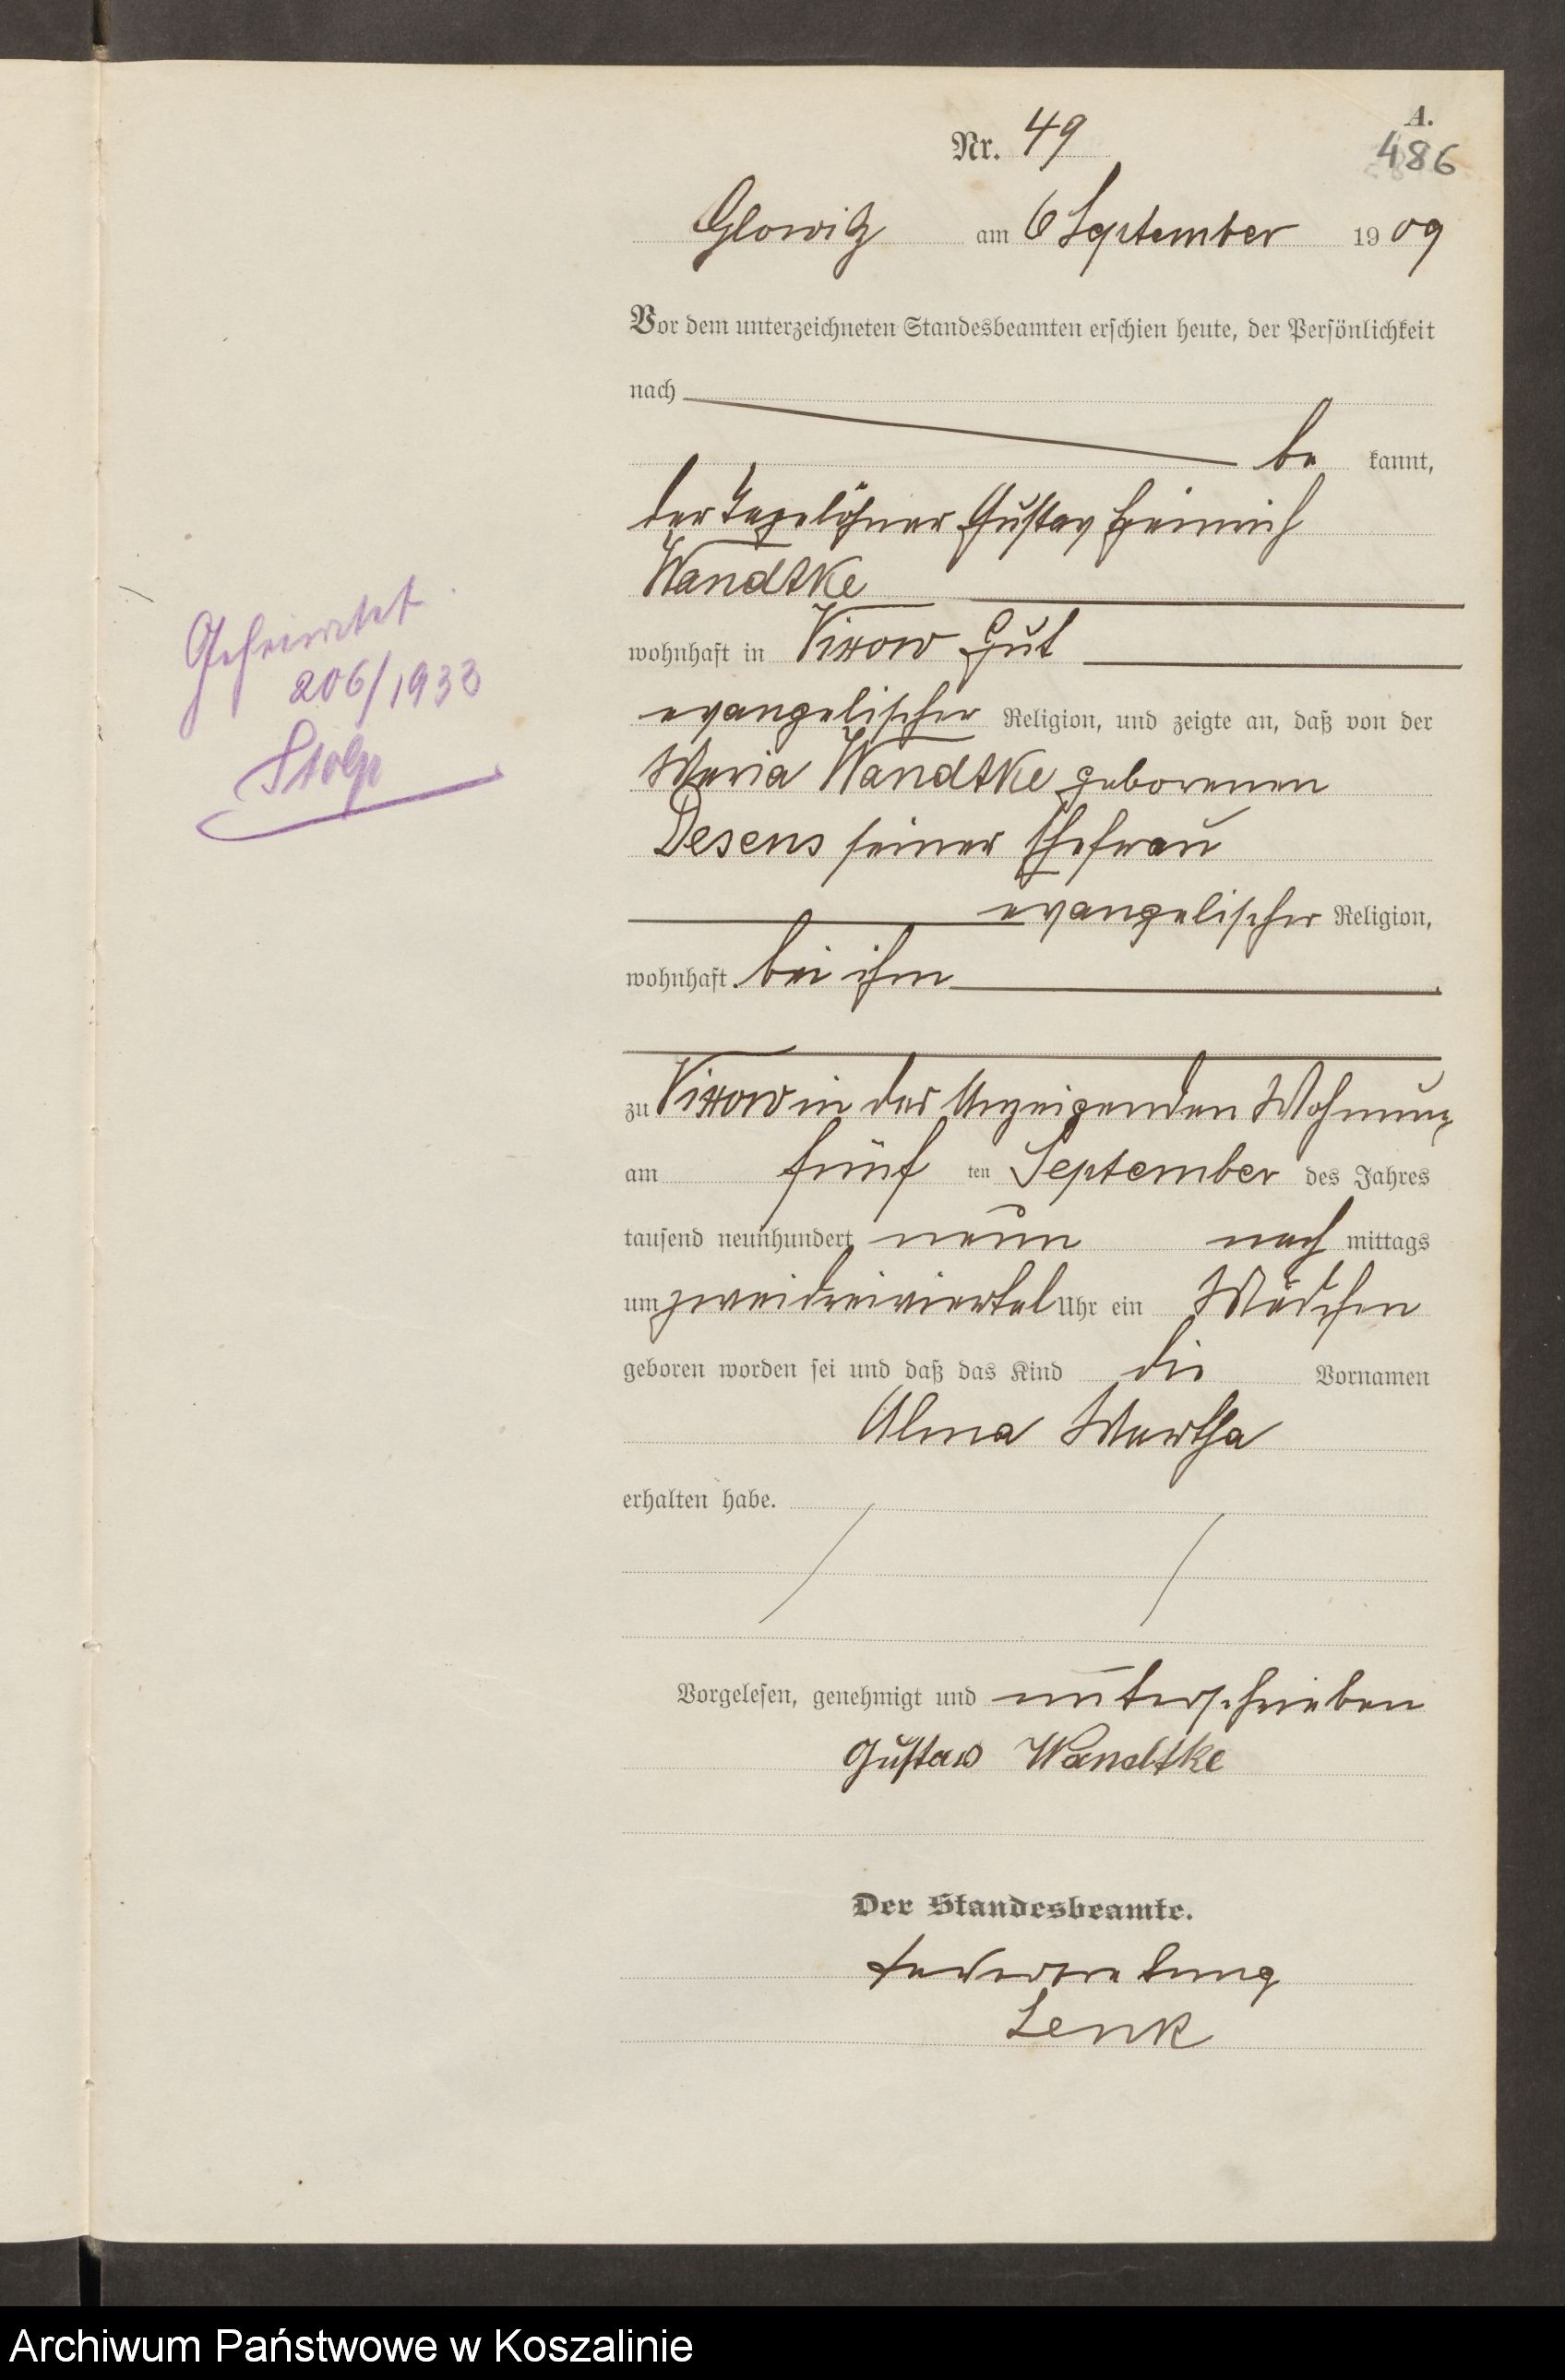 A.
Nr. 49
486
Glowitz am 6 September 1909
Vor dem unterzeichneten Standesbeamten erschien heute, der Persönlichkeit
nach
be kannt,
der Tagelöhner Gustav Heinrich
Wandtke
wohnhaft in Vixow Gut
evangelischer Religion, und zeigte an, daß von der
Maria Wandtke geborenen
Desens seiner Ehefrau
evangelischer Religion,
wohnhaft bei ihm
zu Vixow in des Anzeigenden Wohnung
am fünf ten September des Jahres
tausend neunhundert neun nach mittags
um zweidreiviertel Uhr ein Mädchen
geboren worden sei und daß das Kind die Vornamen
Alma Martha
erhalten habe.
Vorgelesen, genehmigt und unterschrieben
Gustav Wandtke
Der Standesbeamte.
Lenk
Geheiratet
206/1933
Stolp
Archiwum Państwowe w Koszalinie